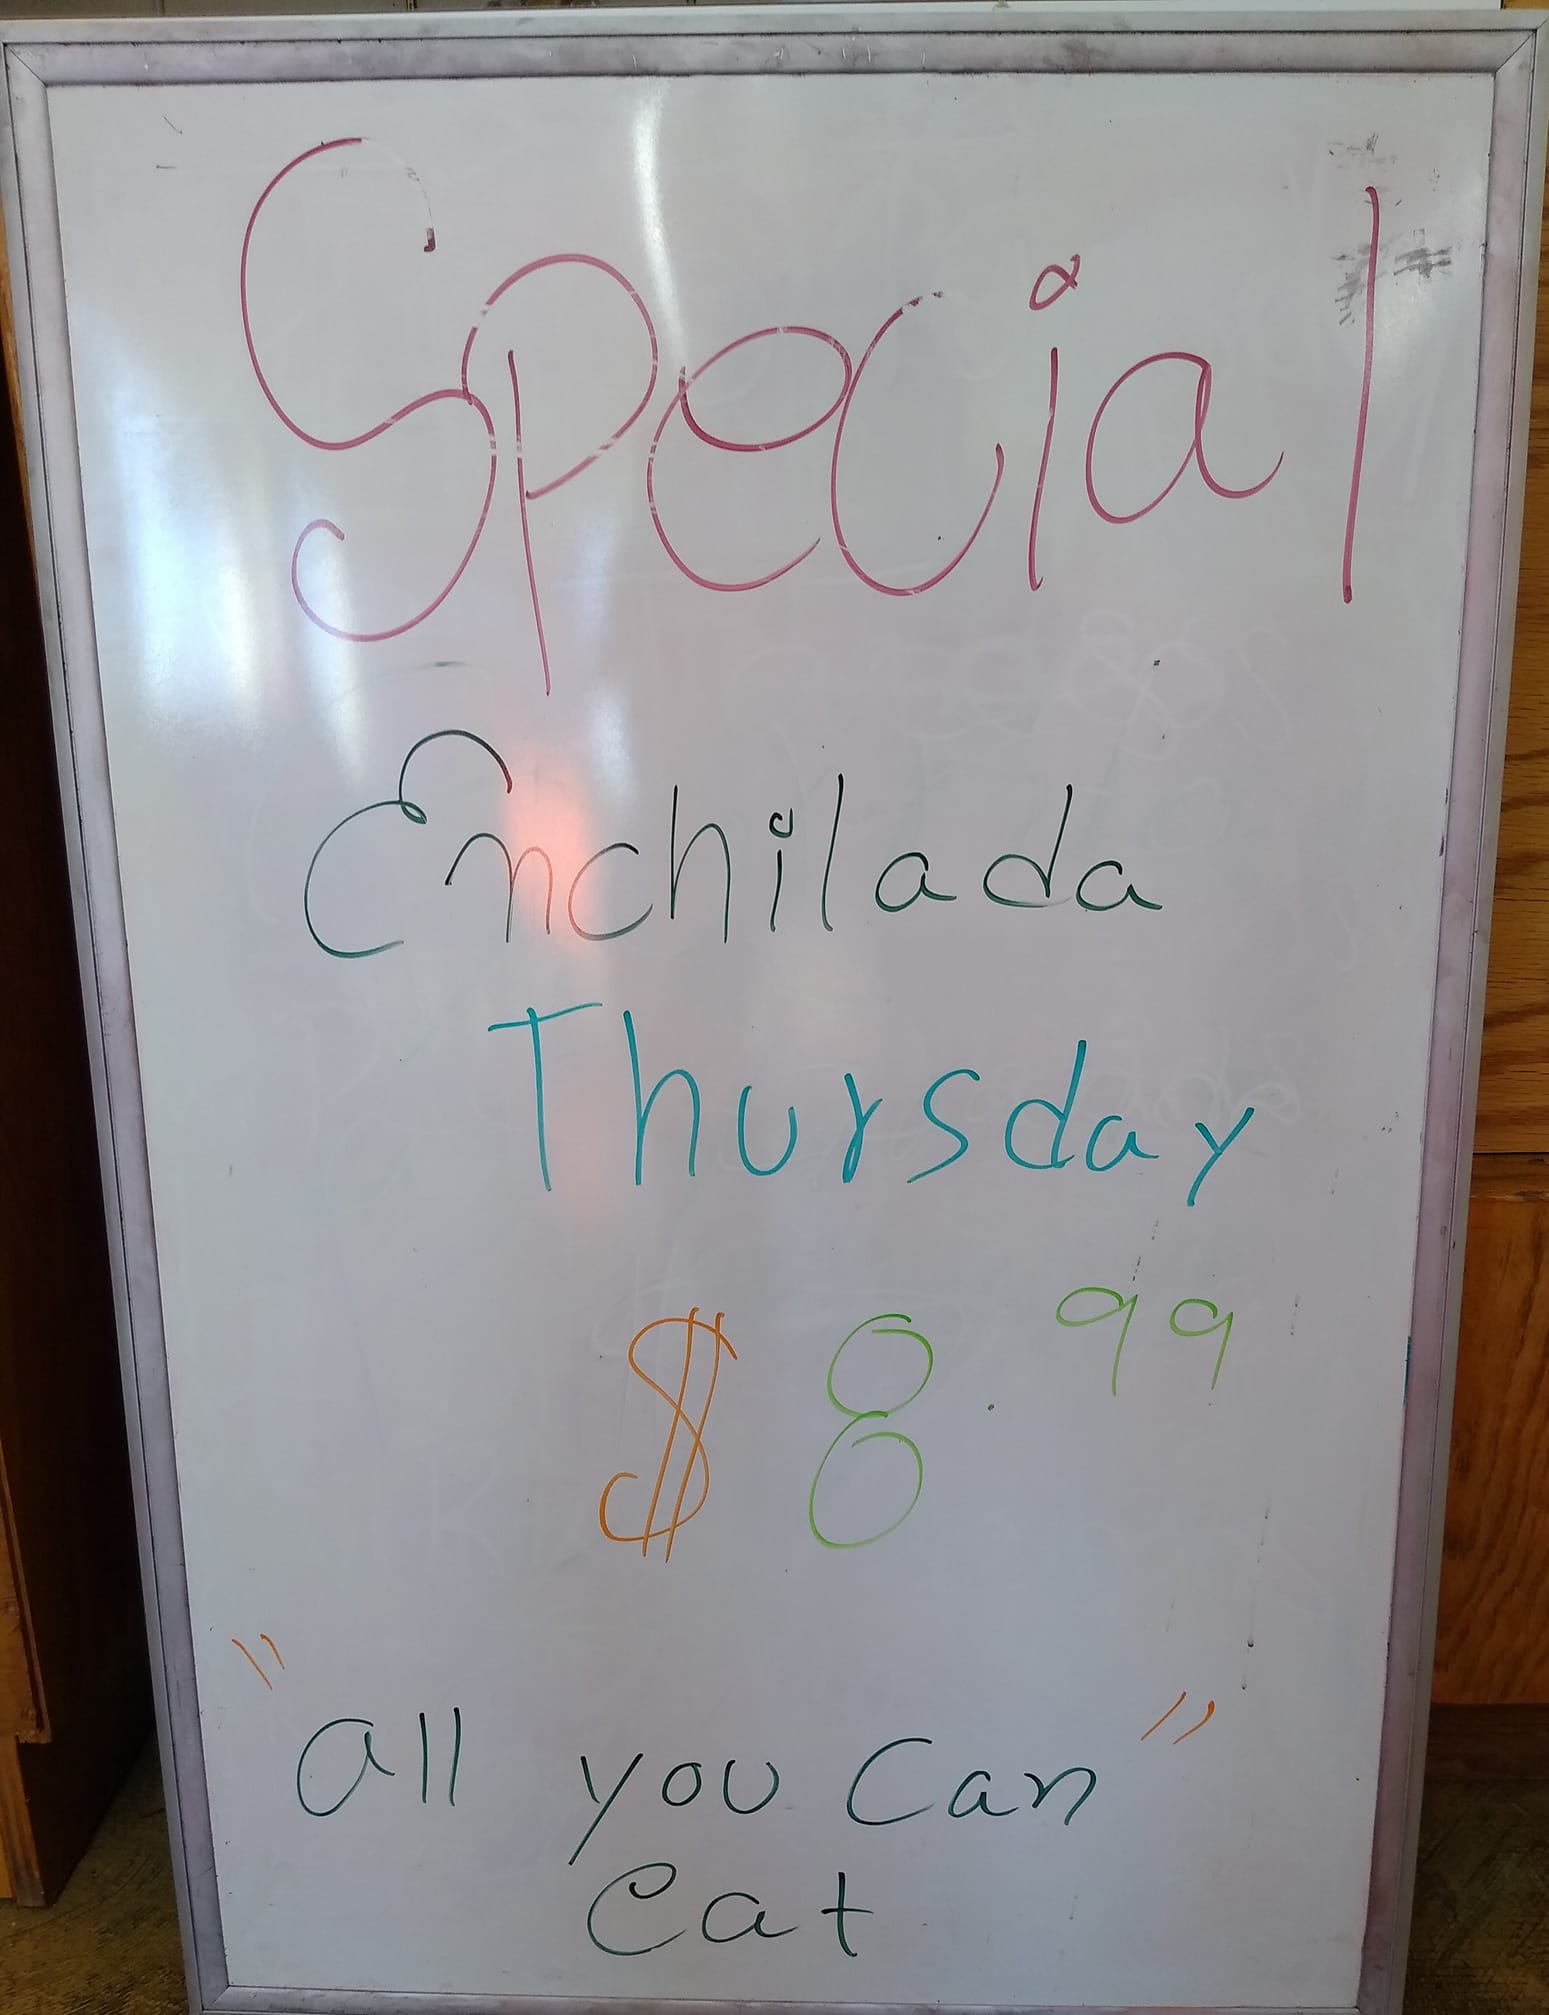 Special
Enchilada
Thursday
$8.99
"all you Can"
eat